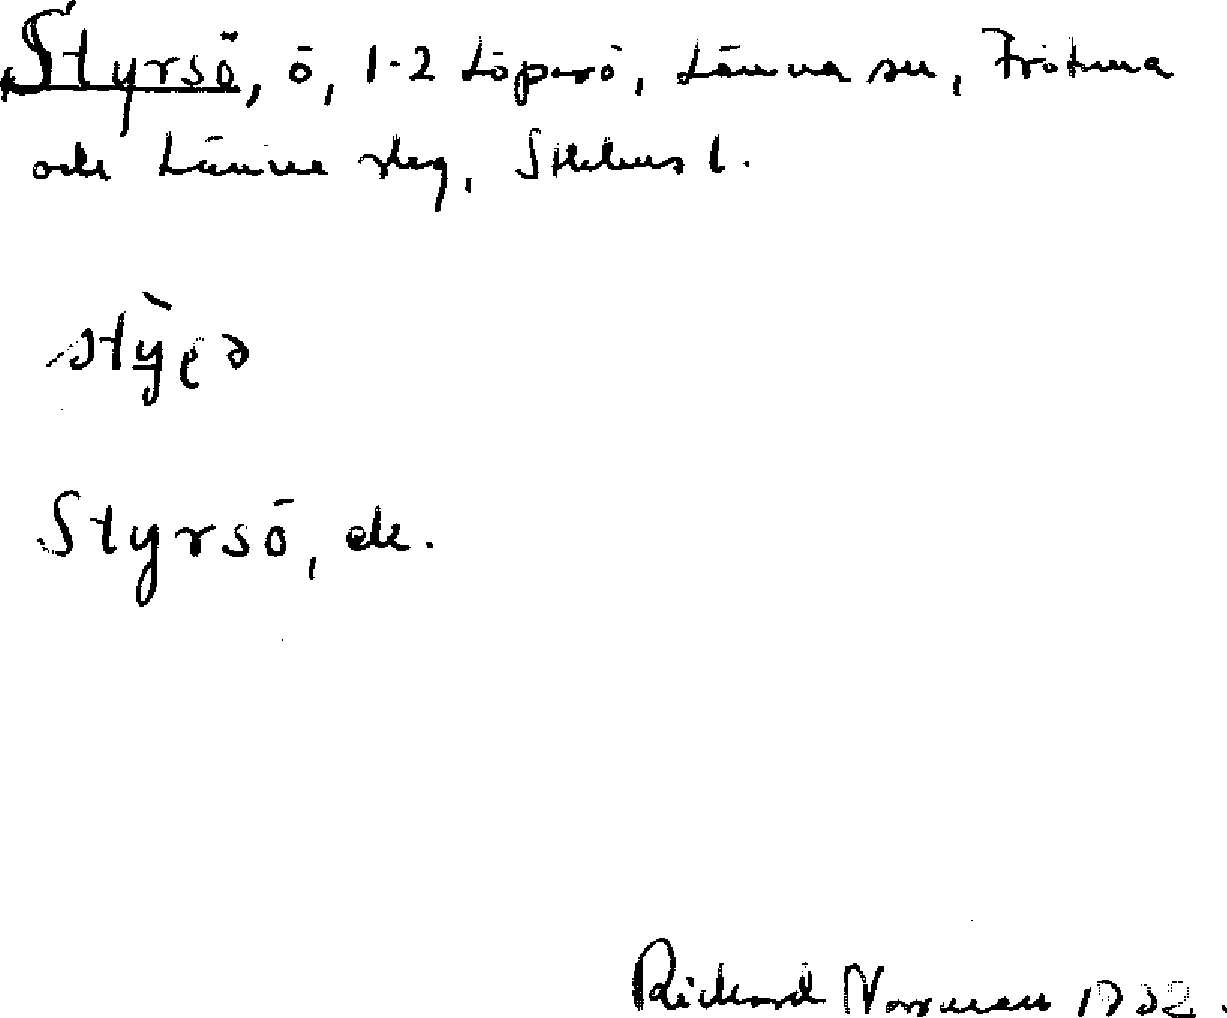 Styrsö, ö, 1-2 Löparö, Länna sn, Frötuna
och Länna skg, Sthlms l.
Styrsö, ek.
Rickard Norrman 1932.